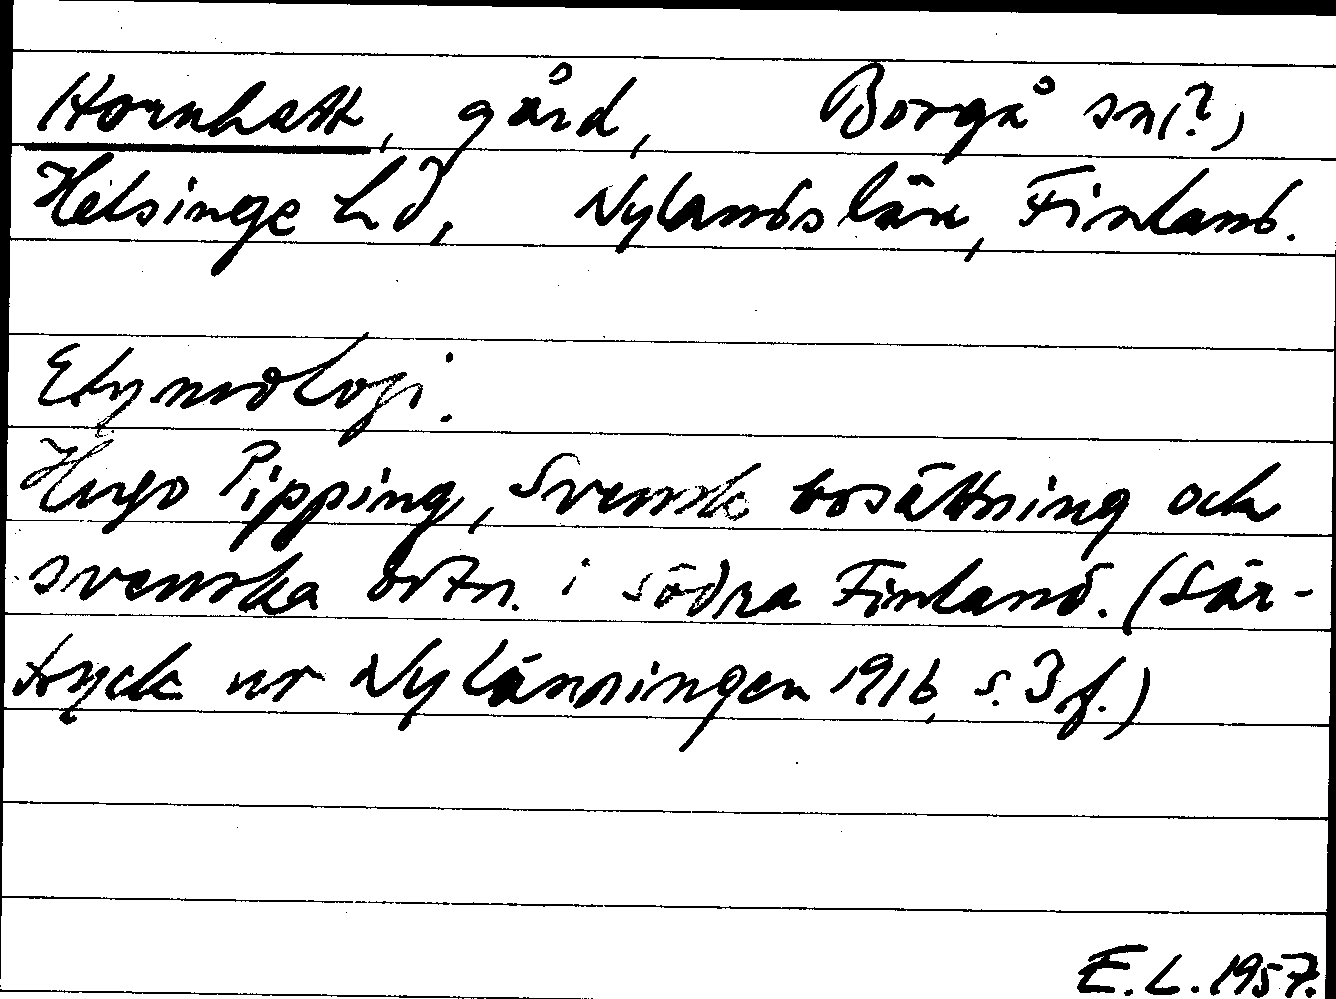 Hornhatt, gård, Borgå sn(?)
Helsinge hd, Nylands län, Finland.
Etymologi.
Hugo Pipping, Svensk bosättning och
svenska ortn. i södra Finland. (Sär-
tryck ur Nylänningen 1916, s. 3 f.)
E.L. 1957.